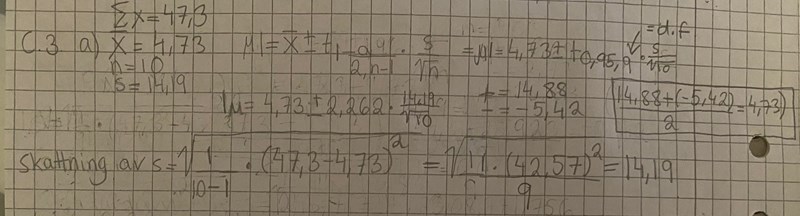 ∑x = 47,3
C.3 a) x̄ = 4,73 μ = x̄ ± t₁₋ₐ/₂,ₙ₋₁ · s/√n = μ = 4,73 ± t₀,₉₅,₉ · s/√10 = d.f
n = 10
s = 14,19
μ = 4,73 ± 2,262 · 14,19/√10 + = 14,88 - = -5,42 (14,88+(-5,42))/2 = 4,73)
skattning av s = √(1/(10-1) · (47,3-4,73)² = √(1 · (42,57)²/9 = 14,19